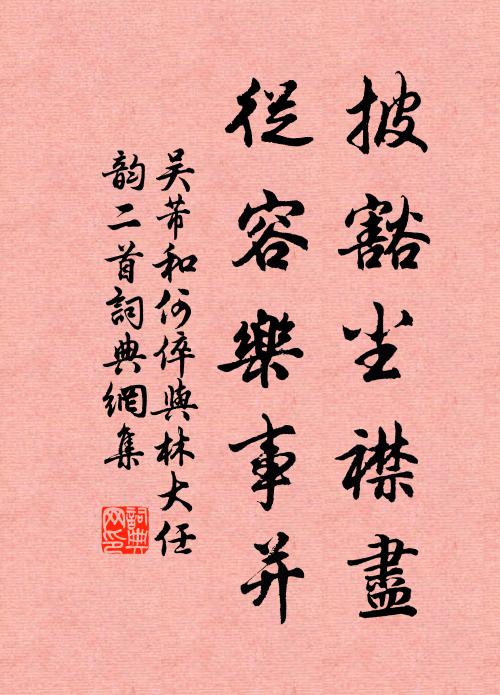 披豁尘襟盡
從容樂事并
吴芾和何倅與林大任
韵二首詞典網集
詞典網印